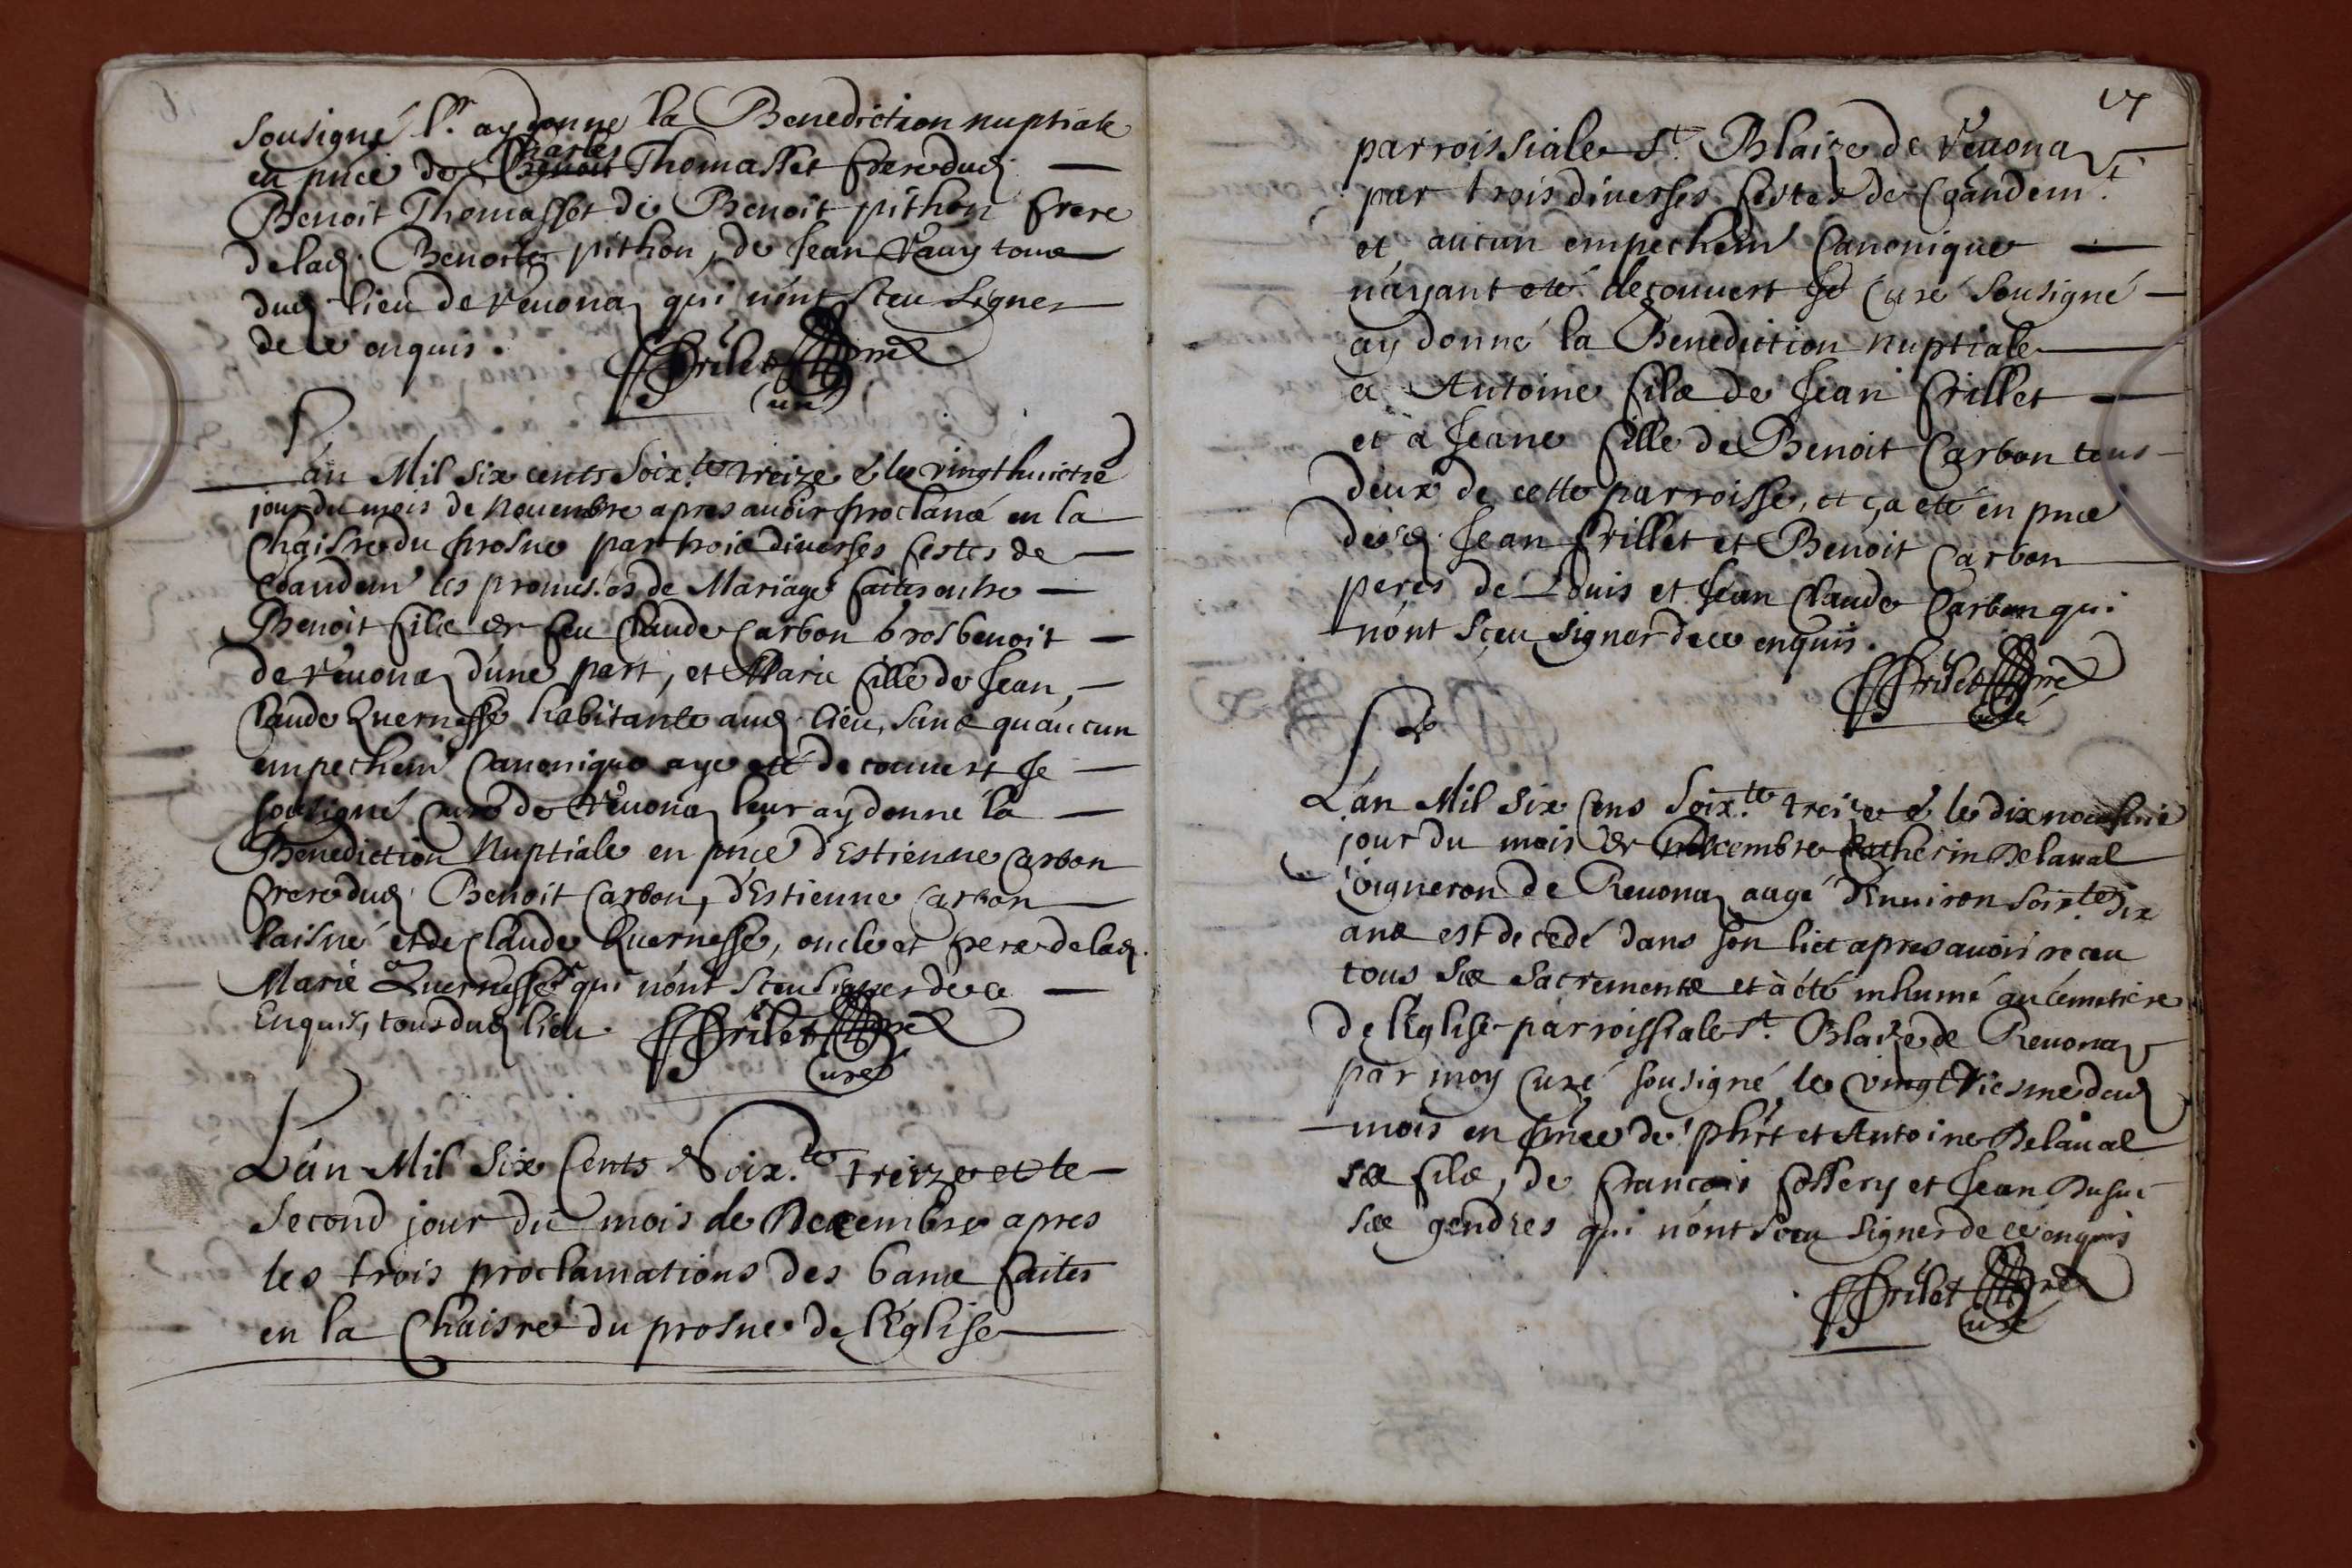 sousigné l.r ay donné la Benediction nuptiale
Charles
en pñce de Benoit Thomasset frere dud.
Benoit Thomasset de Benoit pithon frere
de lad. Benoite pithon, de Jean Vauy tous
dud. lieu de reuona qui n'ont sceu signer
de ce enquis.
Frilet pre
curé
L'an Mil six cents soix.te treize & le vingthuictie
jour du mois de Nouembre apres auoir proclamé en la
Chaisre du prosne par trois diuerses festes de
comandem.t les promesses de Mariage faites entre
Benoit fils de feu Claude Carbon brosbenoit
de reuona d'une part, et Marie fille de Jean,
Claude Quernesse habitante aud. lieu, sans qu'aucun
empechem.t Canonique aye eté decouuert Je
sousigné curé de reuona leur ay donné la
Benediction Nuptiale en pñce d'Estienne Carbon
frere dud. Benoit Carbon, d'Estienne Carbon
laisné et de Claude Quernesse, oncle et pere de lad.
Marie Quernesse qui n'ont sceu signer de ce
Enquis, tous dud. lieu. Frilet pre
curé
L'an Mil six Cents Soix.te treize et le
second jour du mois de Decembre apres
les trois proclamations des bans faites
en la Chaisre du prosne de l'Eglise
parroissiale S.t Blaize de reuona
par trois diuerses festes de comandem.t
et aucun empechem.t Canonique
n'ayant eté decouuert Je Curé sousigné
ay donné la Benediction nuptiale
a Antoine fils de Jean frillet
et à Jeane fille de Benoit Carbon tous
deux de cette parroisse, et ç'a eté en pñce
desd. Jean frillet et Benoit Carbon
peres de Louis et Jean Claude Carbon qui
n'ont sceu signer de ce enquis.
Frilet pre
curé
L'an Mil six Cens soix.te treize & le dixneufuie
jour du mois de Decembre Catherin Delaual
Vigneron de Reuona aagé d'Enuiron soix.te dix
ans est decedé dans son lict apres auoir receu
tous ses sacrements et à été inhumé au cemetiere
de l'Eglise parroissiale S.t Blaize de Reuona
par moy curé sousigné le vingtriesme dud.
mois en pñce de phert et Antoine Delaual
ses fils, de francois et Jean
ses gendres qui n'ont sceu signer de ce enquis
Frilet pre
curé